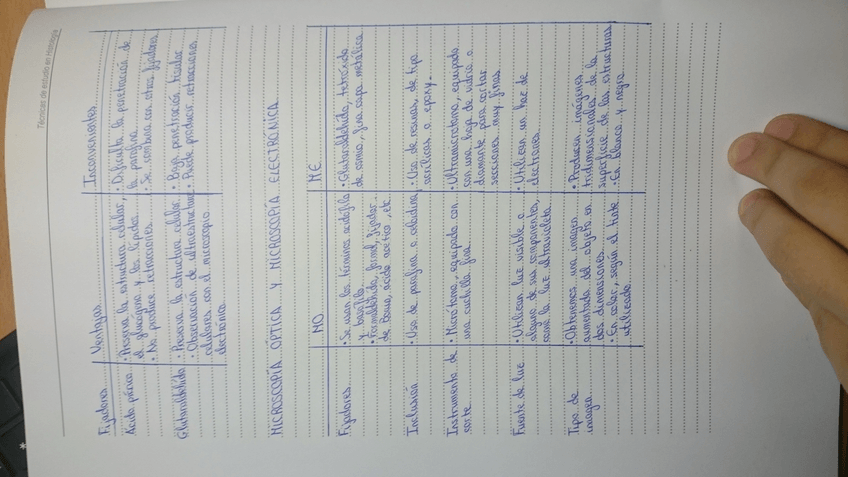 Técnicas de estudio en Histología
Fijadores Ventajas Inconvenientes
Ácido pícrico · Preserva la estructura celular, · Dificulta la penetración de
el glucógeno y los lípidos. la parafina.
· No produce retracciones. · Se combina con otros fijadores
Glutaraldehído · Preserva la estructura celular · Baja penetración tisular
· Observación de ultraestructuras · Puede producir retracciones.
celulares con el microscopio
electrónico
MICROSCOPÍA ÓPTICA Y MICROSCOPÍA ELECTRÓNICA
MO ME
Fijadores · Se usan los términos acidófila · Glutaraldehído, tetróxido
y basófila. de osmio, fina capa metálica
· Formaldehído, formol, fijador
de Bouin, ácido acético, etc.
Inclusión · Uso de parafina o celoidina · Uso de resinas, de tipo
acrílicas o epoxy.
Instrumento de · Micrótomo, equipado con · Ultramicrotomo, equipado
corte una cuchilla fina con una hoja de vidrio o
diamante para cortar
secciones muy finas
Fuente de luz · Utilizan luz visible o · Utilizan un haz de
alguno de sus componentes, electrones
como la luz ultravioleta
Tipo de · Obtenemos una imagen · Producen imágenes
imagen aumentada del objeto en tridimensionales de la
dos dimensiones. superficie de las estructuras
· En color, según el tinte · En blanco y negro
utilizado.